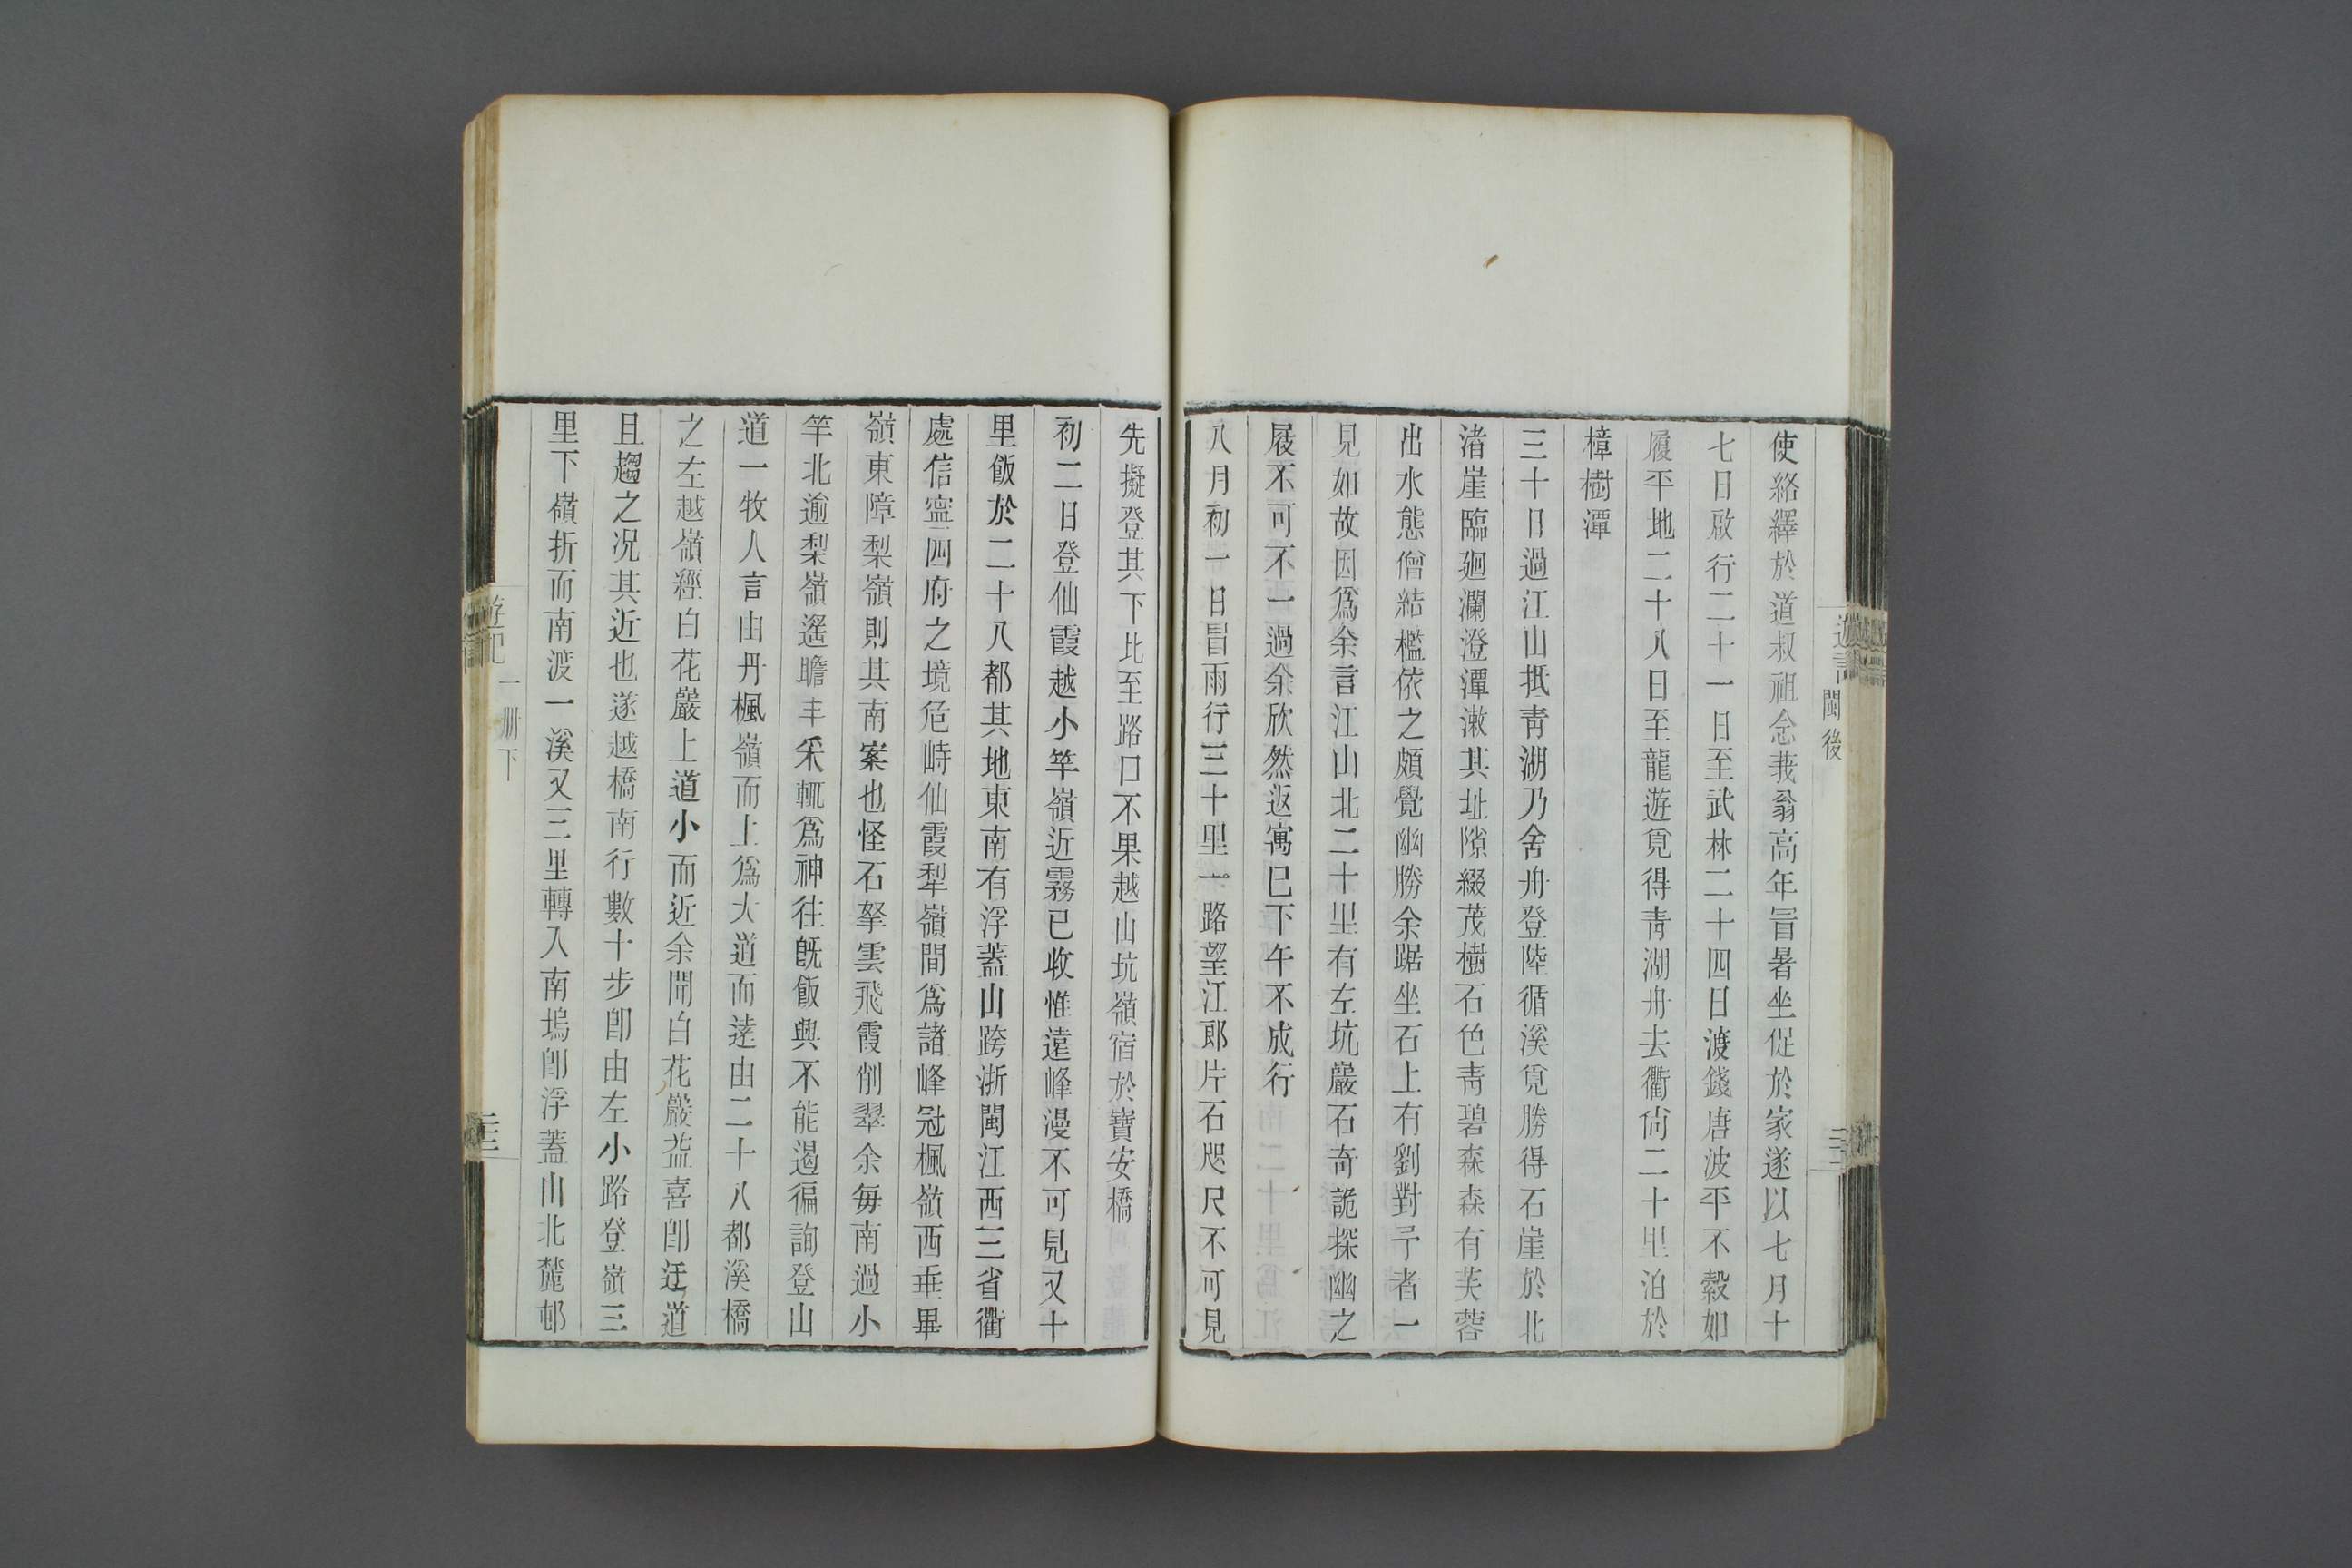 使絡繹於道叔祖念莪翁高年冒暑坐促於家遂以七月十
七日啟行二十一日至武林二十四日渡錢唐波平不縠如
履平地二十八日至龍遊覓得青湖舟去衢尚二十里泊於
樟樹潭
三十日過江山抵青湖乃舍舟登陸循溪覓勝得石崖於北
渚崖臨廻瀾澄潭漱其址隙綴茂樹石色青碧森森有芙蓉
出水態僧結檻依之頗覺幽勝余踞坐石上有劉對予者一
見如故因爲余言江山北二十里有左坑巖石奇詭探幽之
屐不可不一過余欣然返寓已下午不成行
八月初一日冒雨行三十里一路望江郎片石咫尺不可見
先擬登其下比至路口不果越山坑嶺宿於寶安橋
初二日登仙霞越小竿嶺近霧已收惟遠峰漫不可見又十
里飯於二十八都其地東南有浮蓋山跨浙閩江西三省衢
處信寧四府之境危峙仙霞犁嶺間爲諸峰冠楓嶺西垂畢
嶺東障梨嶺則其南案也怪石拏雲飛霞削翠余每南過小
竿北逾梨嶺遙瞻丰采輒爲神往既飯興不能遏徧詢登山
道一牧人言由丹楓嶺而上爲大道而逺由二十八都溪橋
之左越嶺經白花巖上道小而近余聞白花巖益喜卽迂道
且趨之况其近也遂越橋南行數十步卽由左小路登嶺三
里下嶺折而南渡一溪又三里轉入南塢卽浮蓋山北麓邨
閩後
遊記
一册下